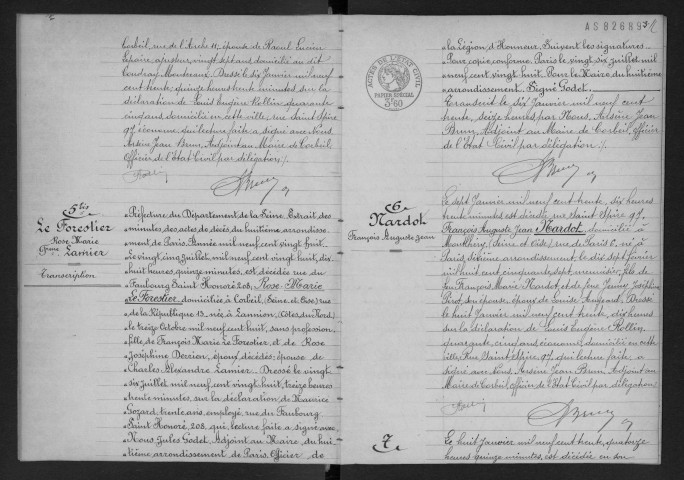 Corbeil, rue de l'Arche 11; épouse de Raoul Lucien
Lepoire, ajusteur, vingt sept ans domicilié au dit
Coudray Montceaux. Dressé le six Janvier mil neuf
cent trente, quinze heures trente minutes sur la
déclaration de Louis Eugène Rollin, quarante
cinq ans domicilié en cette ville, rue Saint Spire
97, économe qui lecture faite a signé avec Nous
Arsène Jean Brun, Adjoint au Maire de Corbeil
Officier de l'Etat Civil par délégation ./.
5 bis
Le Forestier
Rose Marie
Fme Lamier
Transcription
"Préfecture du Département de la Seine. Extrait des
"minutes des actes de décès du huitième arrondisse-
"ment de Paris. Année mil neuf cent vingt huit.
"Le vingt cinq juillet mil neuf cent vingt huit, dix
"huit heures, quinze minutes, est décédée rue du
"Faubourg Saint Honoré 208, Rose-Marie
"Le Forestier, domiciliée à Corbeil (Seine et Oise) rue
"de la République 13, née à Lannion (Côtes du Nord)
"le treize Octobre mil neuf cent huit, sans profession,
"fille de François Marie Le Forestier et de Rose
"Joséphine Derrien, époux décédés; épouse de
"Charles Alexandre Lamier. Dressé le vingt
"six juillet mil neuf cent vingt huit, treize heures
"trente minutes, sur la déclaration de Maurice
"Gozard, trente ans, employé, rue du Faubourg
"Saint Honoré, 208, qui, lecture faite a signé avec
"Nous, Jules Godet, Adjoint au Maire du hui-
"tième arrondissement de Paris, Officier de
AS826893
"la Légion d'Honneur. Suivent les signatures.
"Pour copie conforme, Paris le vingt six juillet mil
"neuf cent vingt huit. Pour le Maire du huitième
"arrondissement. Signé Godet.
Transcrit le six Janvier mil neuf cent
trente, seize heures par Nous, Arsène Jean
Brun, Adjoint au Maire de Corbeil, Officier
de l'Etat Civil par délégation ./.
ACTES DE L'ETAT CIVIL
PAPIER SPECIAL
3F60
6
Nardot
François Auguste Jean
Le sept Janvier mil neuf cent trente, six heures
trente minutes est décédé rue Saint Spire 97,
François Auguste Jean Nardot domicilié à
Montlhéry, (Seine et Oise) rue de Paris 6, né à
Paris, sixième arrondissement, le dix sept février
mil huit cent cinquante sept, menuisier, fils de
feu François Marie Nardot et de feue Jeanne Joséphine
son épouse, époux de Louise Dressé
le huit Janvier mil neuf cent trente, dix heures
sur la déclaration de Louis Eugène Rollin,
quarante cinq ans, économe domicilié en cette
ville, Rue Saint Spire 97, qui lecture faite a
signé avec Nous, Arsène Jean Brun, Adjoint au
Maire de Corbeil, Officier de l'Etat Civil par délégation
7
Le huit Janvier mil neuf cent trente, quatorze
heures quinze minutes, est décédée en son